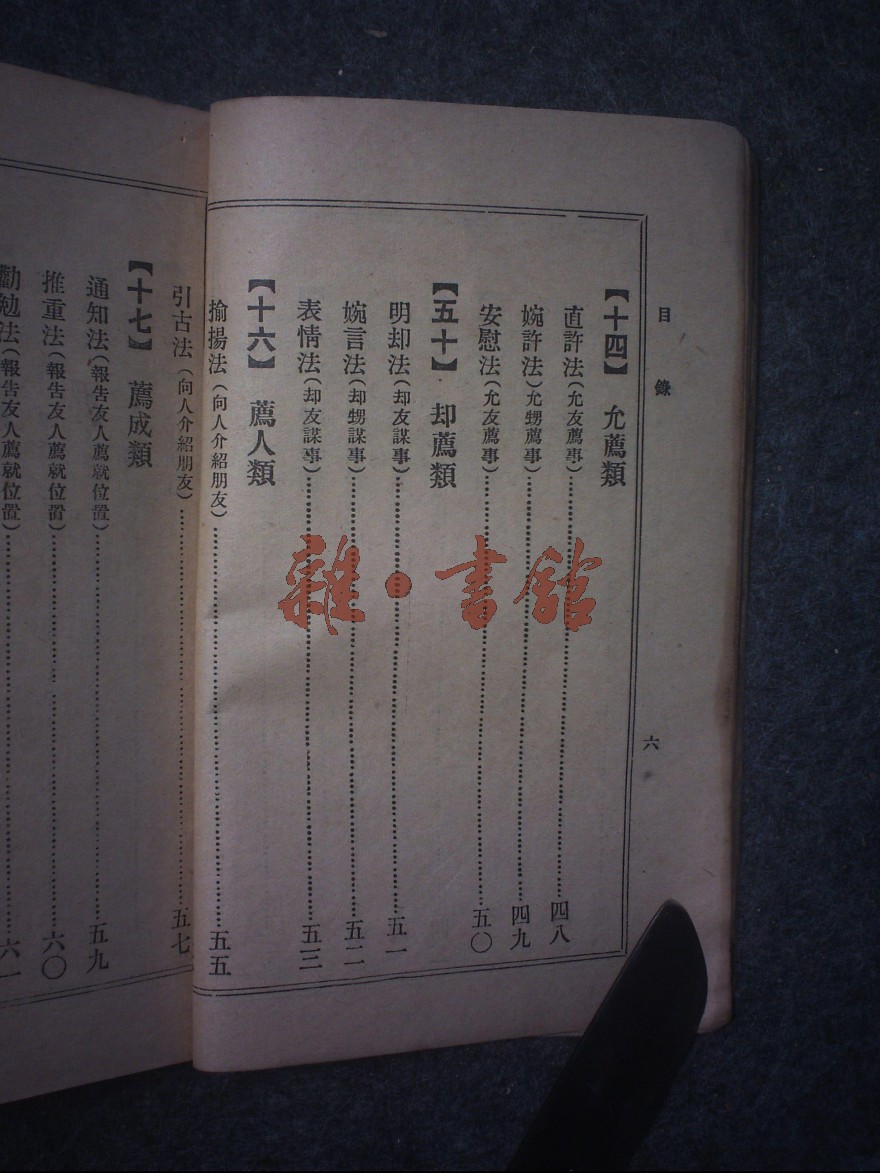 目錄
六
【十四】 允薦類
直許法(允友薦事)……四八
婉許法)允甥薦事(……四九
安慰法(允友薦事)……五〇
【五十】 却薦類
明却法(却友謀事)……五一
婉言法(却甥謀事)……五二
表情法(却友謀事)……五三
【十六】 薦人類
揄揚法(向人介紹朋友)……五五
引古法(向人介紹朋友)……五七
【十七】 薦成類
通知法(報告友人薦就位置)……五九
推重法(報告友人薦就位置)……六〇
勸勉法(報告友人薦就位置)……六一
雜·書館